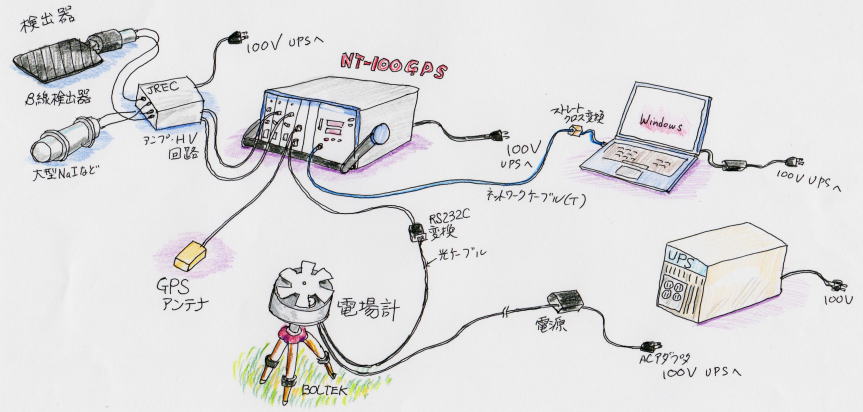 検出器
β線検出器
大型NaIなど
JREC
アンプ・HV
回路
100V UPSへ
NT-100GPS
100V
UPSへ
ストレート
クロス変換
Windows
100V UPSへ
ネットワークケーブル(T)
RS232C
変換
光ケーブル
GPS
アンテナ
電場計
BOLTEK
電源
ACアダプタ
100V UPSへ
UPS
100V